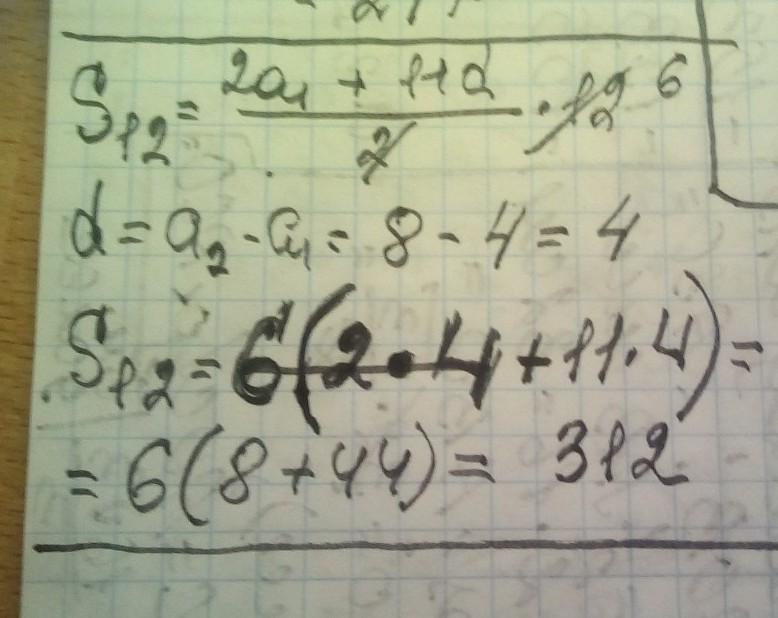 S₁₂ = (2a₁ + 11d)/2 · 12 6
d = a₂ - a₁ = 8 - 4 = 4
S₁₂ = 6(2 · 4 + 11 · 4) =
= 6(8 + 44) = 312